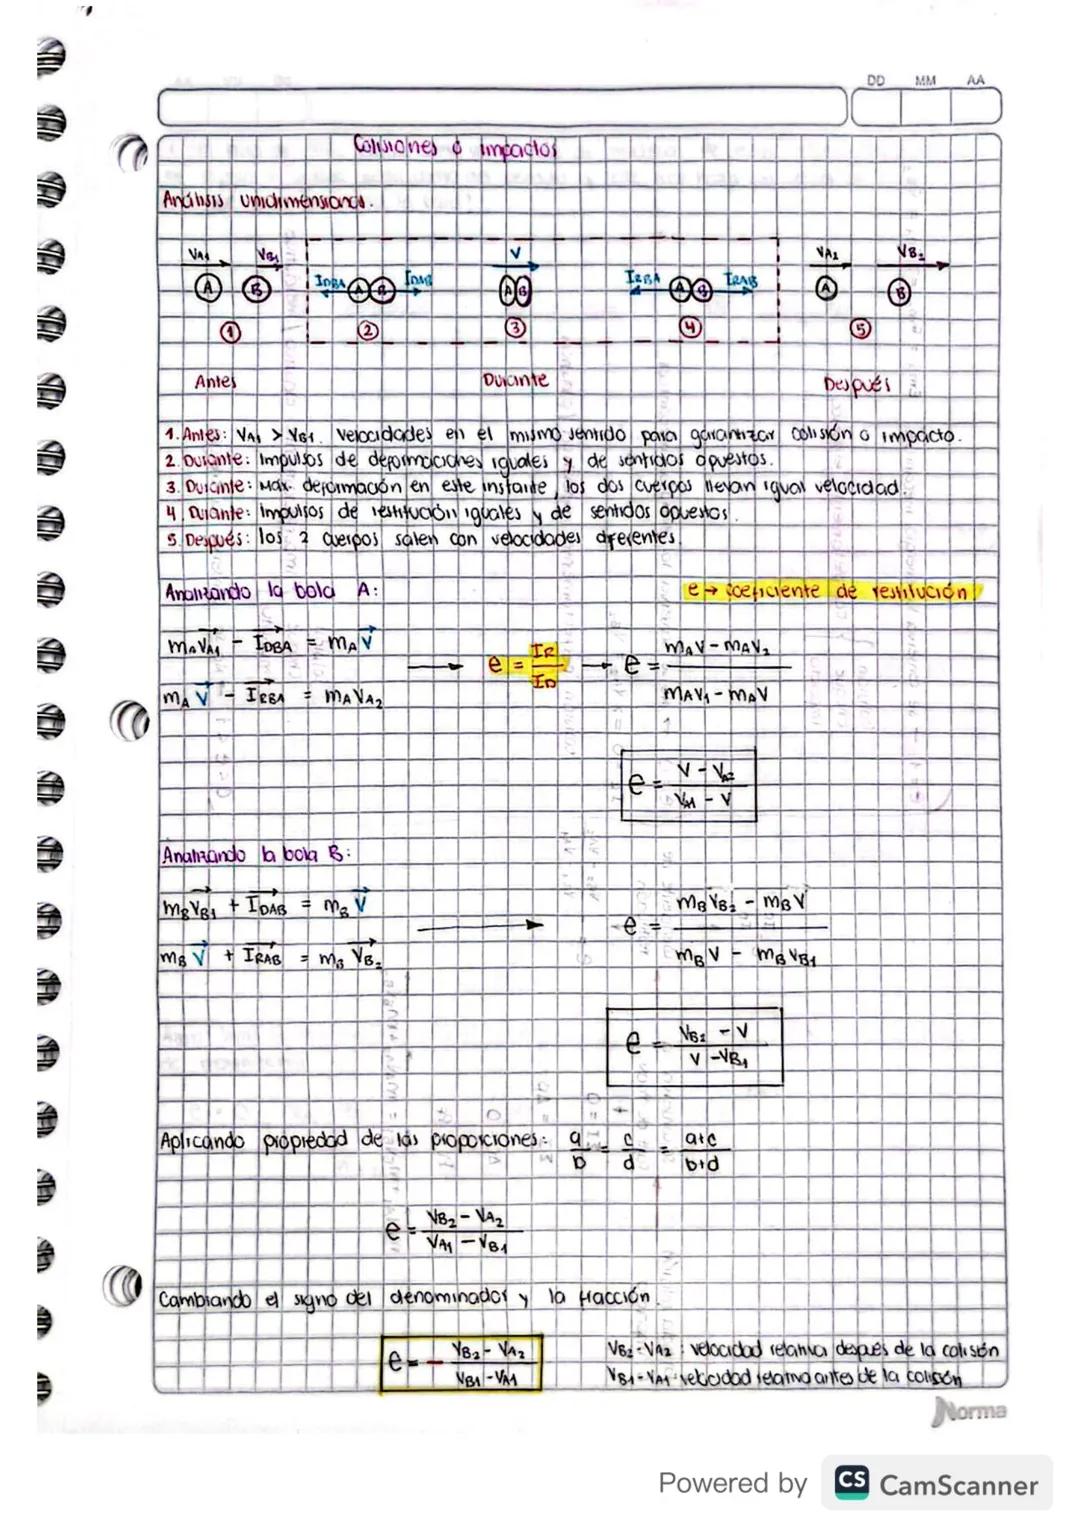 DD MM AA
Colisiones ó impactos
Análisis unidimensional.
VA1 VB1 V VA2 VB2
IDBA A B IDAB A B IRBA A B IRAB A B
A B
1 2 3 4 5
Antes Durante Después
1. Antes: VA1 > VB1. Velocidades en el mismo sentido para garantizar colisión o impacto.
2. Durante: Impulsos de deformaciones iguales y de sentidos opuestos.
3. Durante: Max. deformación en este instante, los dos cuerpos llevan igual velocidad.
4. Durante: Impulsos de restitución iguales y de sentidos opuestos.
5. Después: los 2 cuerpos salen con velocidades diferentes.
Analizando la bola A: e → coeficiente de restitución
mAVA1 - IDBA = mAV
mAV - IRBA = mAVA2
→ e = IR / ID → e = mAV - mAV2 / mAV1 - mAV
e = V - VA2 / VA1 - V
Analizando la bola B:
mBVB1 + IDAB = mBV
mBV + IRAB = mBVB2
→ e = mBVB2 - mBV / mBV - mBVB1
e = VB2 - V / V - VB1
Aplicando propiedad de las proporciones: a/b = c/d = a+c/b+d
e = VB2 - VA2 / VA1 - VB1
Cambiando el signo del denominador y la fracción.
e = - VB2 - VA2 / VB1 - VA1
VB2 - VA2: velocidad relativa después de la colisión
VB1 - VA1: velocidad relativa antes de la colisión
Norma
Powered by CS CamScanner